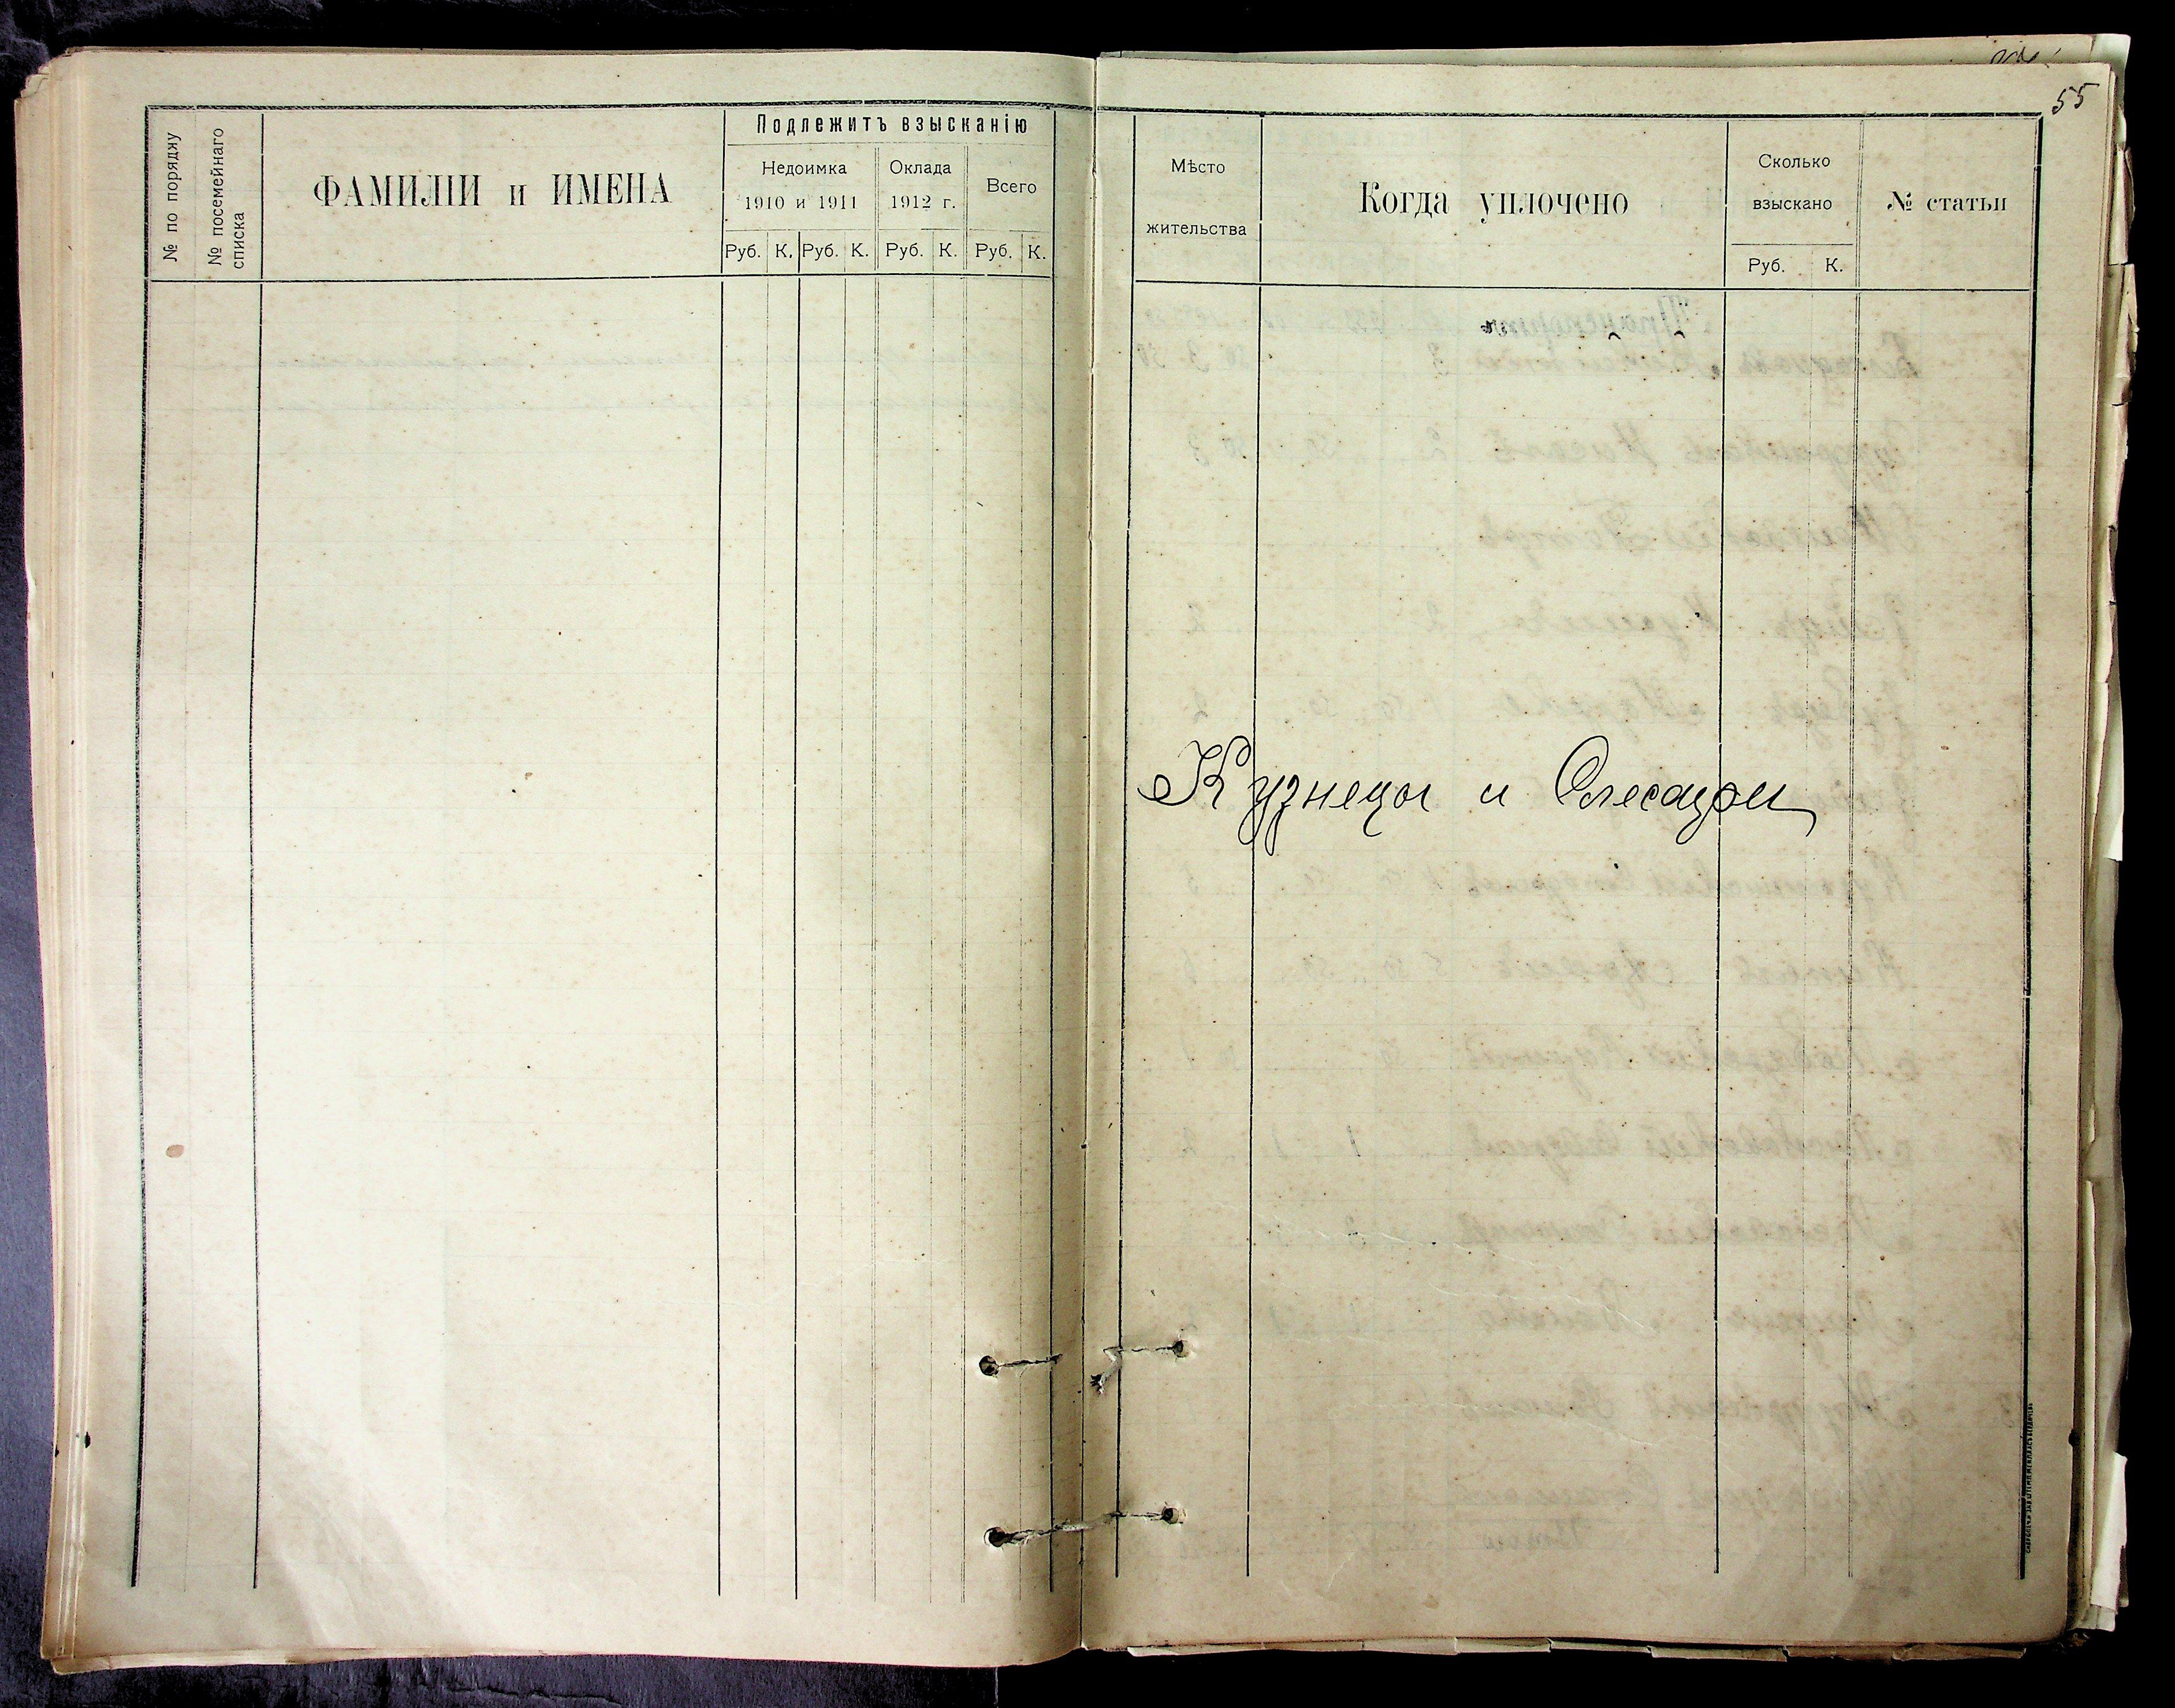 55
№ по порядку
№ посемейнаго списка
ФАМИЛІИ и ИМЕНА
Подлежитъ взысканію
Недоимка
1910 и 1911
Оклада
1912 г.
Всего
Руб. К. Руб. К. Руб. К. Руб. К.
Мѣсто
жительства
Когда уплочено
Сколько
взыскано
Руб. К.
№ статьи
Кузнецы и Слесари